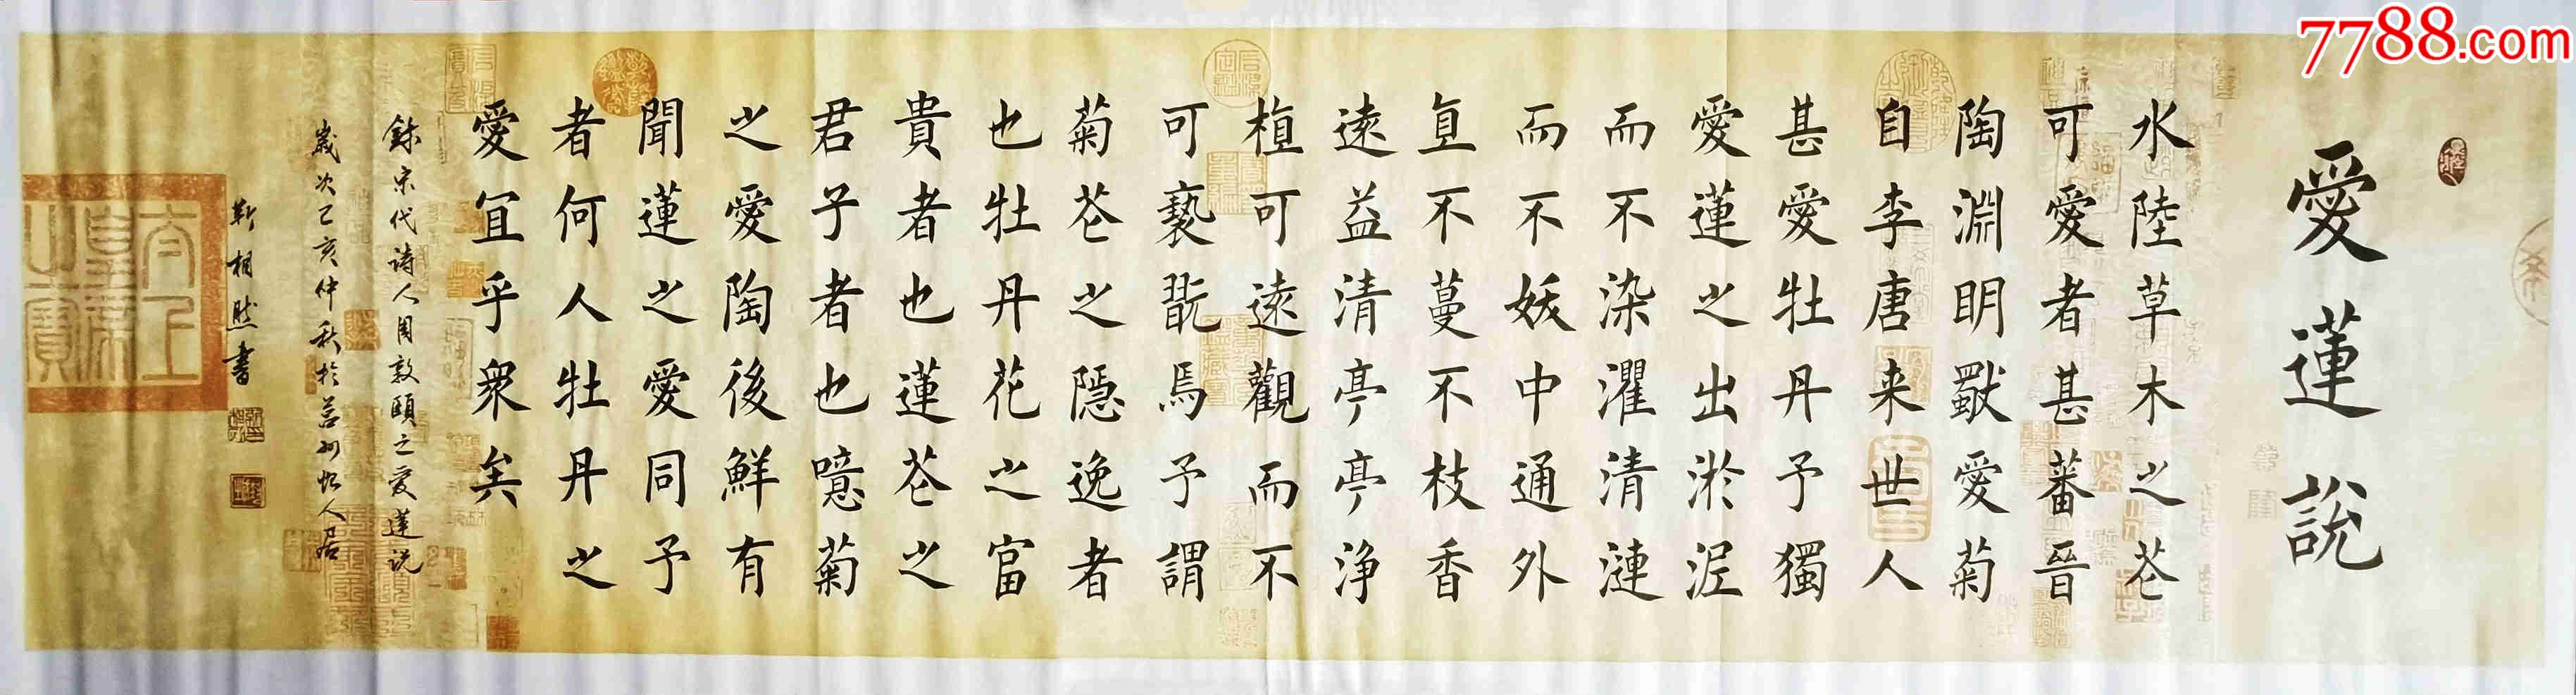 7788.com
愛蓮說
水陸草木之苍
可愛者甚蕃晉
陶淵明獸愛菊
自李唐来世人
甚愛牡丹予獨
愛蓮之出淤泥
而不染濯清漣
而不妖中通外
直不蔓不枝香
遠益清亭亭净
植可遠觀而不
可褻翫焉予謂
菊苍之隱逸者
也牡丹花之富
貴者也蓮苍之
君子者也噫菊
之愛陶後鮮有
聞蓮之愛同予
者何人牡丹之
愛宜乎衆矣
錄宋代诗人周敦頤之爱莲说
歲次己亥仲秋於莒州
靳相然書
太上皇帝之寶